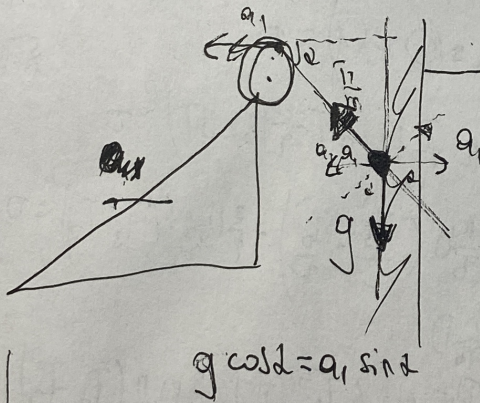 a₁
α
T/m
a₁
a₁
α
g
g cosα = a₁ sinα